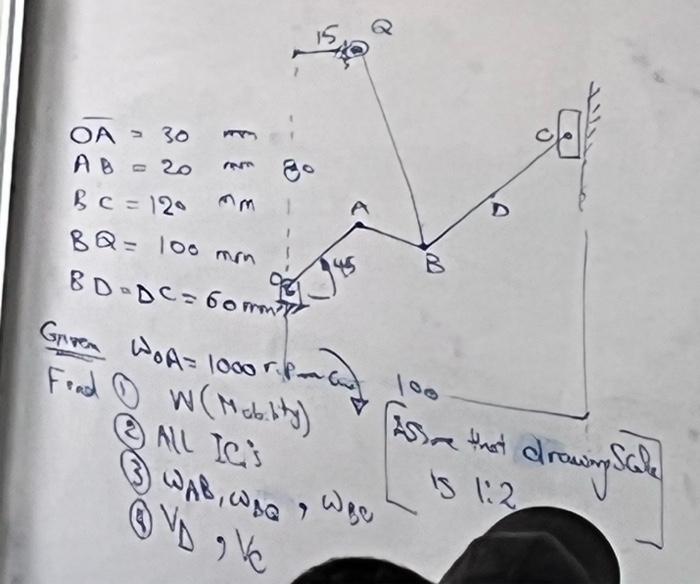 15 Q
OA = 30 mm
AB = 20 mm 80
BC = 120 mm
BQ = 100 mm
BD = DC = 60 mm
C
D
A
B
O
45
Given WOA = 1000 r.p.m
Find ① W (Mobility)
② ALL IC's
③ WAB, WBQ, WBC
④ VD, VC
100
Assume that drawing Scale
is 1:2